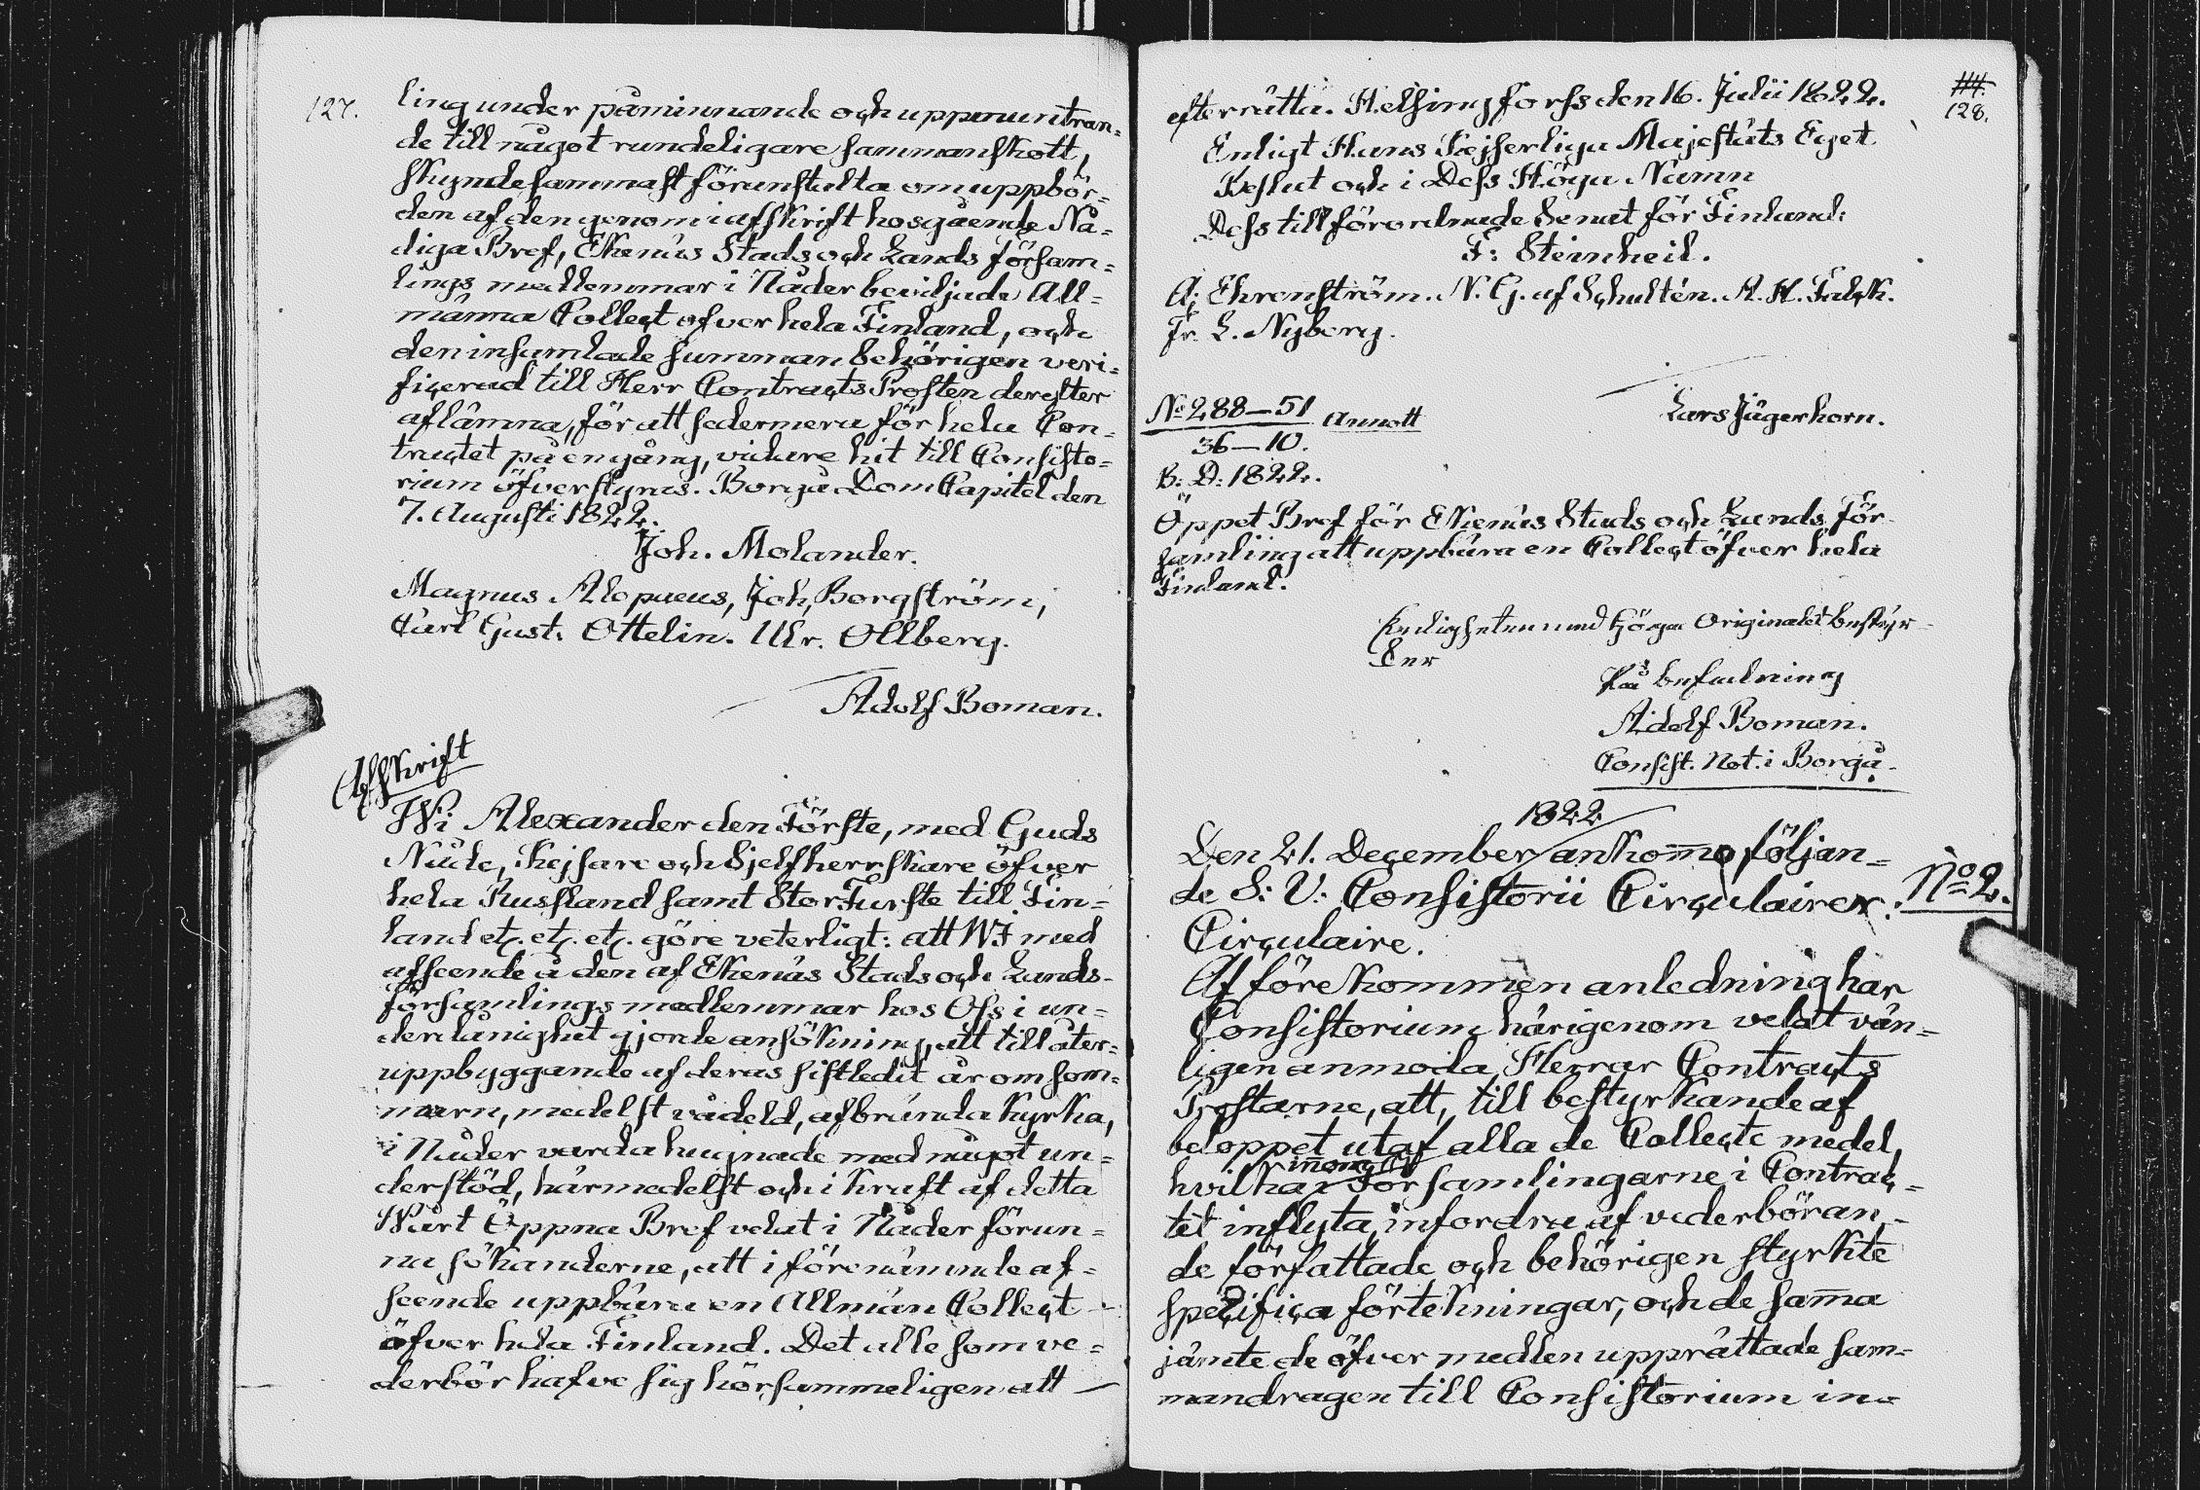 127.
ling under påminnande och uppmuntran=
de till något rundeligare sammanskott,
skyndesammast föranstalta om uppbör=
den af den genom i afskrift hosgående Nå=
diga Bref, Ekenäs Stads och Lands Försam=
lings medlemmar i Nåder beviljade All=
männa Collect öfver hela Finland, och
den insamlade summan behörigen veri=
ficerad till Herr Contracts Prosten derefter
aflämna, för att sedermera för hela Con=
tractet på en gång, vidare hit till Consisto=
rium öfverstyras. Borgå DomCapitel den
7. Augusti 1822.
Joh. Molander.
Magnus Alopaeus, Joh, Borgström,
Carl Gust. Ottelin. Ulr. Ollberg.
Adolf Boman.
Afskrift
Wi Alexander den Förste, med Guds
Nåde, Kejsare och Sjelfherrskare öfver
hela Russland samt StorFurste till Fin=
land etc. etc. etc. göre veterligt: att WI med
afseende å den af Ekenäs Stads och Lands-
församlings medlemmar hos Oss i un=
derdånighet gjorde ansökning, att till åter=
uppbyggande af deras sistledit år om som=
marn, medelst vådeld, afbrända Kyrka,
i Nåder varda hugnade med något un=
derstöd, härmedelst och i kraft af detta
Wårt Öppna Bref velat i Nåder förun=
na sökanderne, att i förenämnde af=
seende uppbära en Allmän Collect
öfver hela Finland. Det alle som ve=
derbör hafve sig hörsammeligen att
128.
efterrätta. Helsingforss den 16. Julii 1822.
Enligt Hans Kejserliga Majestäts Eget
Beslut och i Dess Höga Namn
Dess tillförordnade Senat för Finland:
F: Steinheil.
A: Ehrenström. N. G. af Schultén. A. H. Falck.
Fr. L. Nyberg.
Lars Jägerhorn.
No 288–51 Annott
36–10.
B: D: 1822.
Öppet Bref för Ekenäs Stads och Lands För-
samling att uppbära en Collect öfver hela
Finland.
Enligheten med höga Originalet bestyr-
ker
På befallning
Adolf Boman.
Consist. Not. i Borgå.
1822
Den 21. December ankomo följan=
de S: V: Consistorii Circulairer: No 2.
Circulaire.
Af förekommen anledning har
Consistorium härigenom velat vän=
ligen anmoda Herrar Contracts
Prostarne, att, till bestyrkande af
beloppet utaf alla de Collecte medel,
inom
hvilka Församlingarne i Contrac=
tet inflyta, infordra af vederböran=
de författade och behörigen styrkte
specifica förtekningar, och de sama
jämte de öfver medlen upprättade sam=
mandragen till Consistorium in=